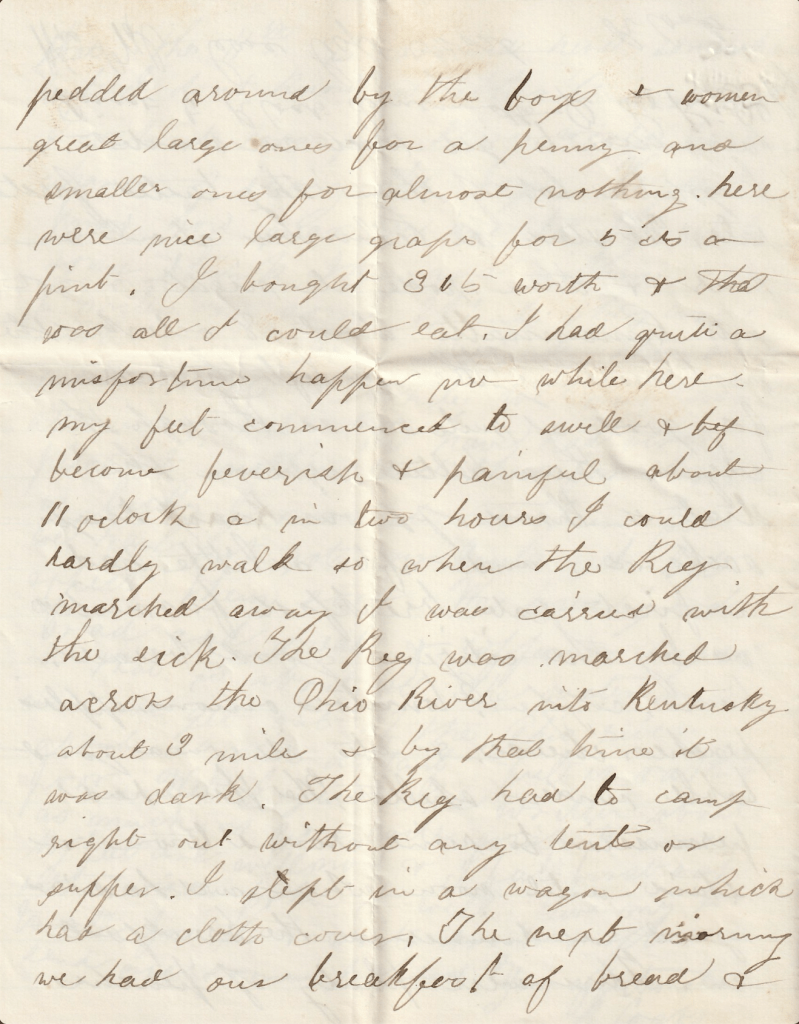 pedded around by the boys & women
great large ones for a penny and
smaller ones for almost nothing. here
were nice large graps for 5 cts a
pint. I bought 315 worth & that
was all I could eat. I had quite a
misfortune happen me while here.
my feet commenced to swell & bef
become feverish & painful about
11 oclock a in two hours I could
hardly walk so when the Reg
marched away I was carried with
the sick. The Reg was marched
across the Ohio River into Kentucky
about 3 mile & by that time it
was dark. The Reg had to camp
right out without any tents or
supper. I slept in a wagon which
had a cloth cover. The next morning
we had our breakfast of bread &